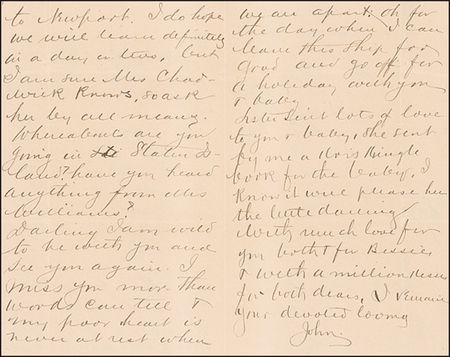 to Newport. I do hope
we will learn definitely
in a day or two, but
I am sure Mrs Chad-
wick knows, so ask
her by all means.
Whereabouts are you
going in Staten Is-
land? have you heard
anything from Mrs
Williams?
Darling I am wild
to be with you and
see you again. I
miss you more than
words can tell &
my poor heart is
never at rest when
we are apart. oh for
the day when I can
leave this ship for
good and go off for
a holiday with you
& baby
Sister sent lots of love
to you & baby, she sent
by me a Kringle
book for the baby. I
know it will please her
the little darling
With much love for
you both & for Bessie
& with a million kisses
for both dears, I remain
your devoted loving
John.